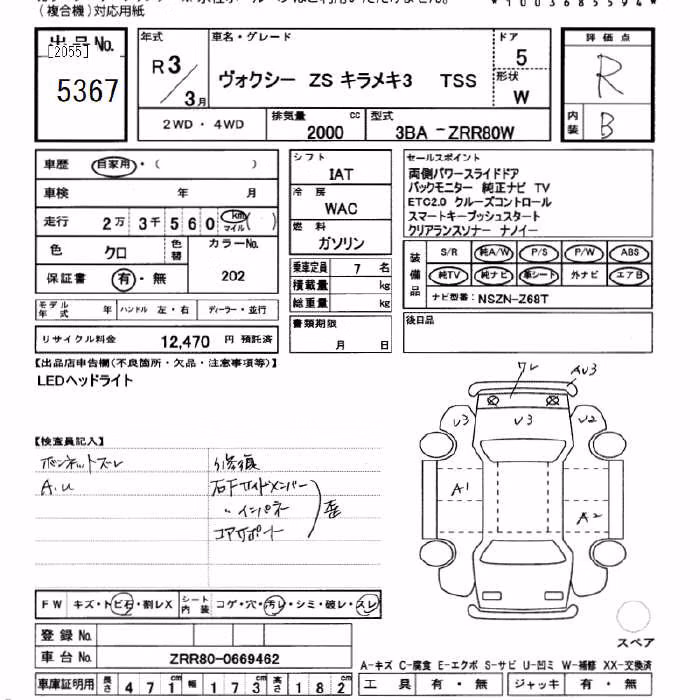 (複合機)対応用紙
*1003685594*
出品No.
[2055]
5367
年式
R3/3月
車名・グレード
ヴォクシー ZS キラメキ3 TSS
ドア
5
形状
W
評価点
R
内装
B
2WD・4WD
排気量 cc
2000
型式
3BA-ZRR80W
車歴 自家用・( )
車検 年 月
走行 2万3千560 km マイル ( )
色 クロ 色替 カラーNo. 202
保証書 有・無
モデル年式 年 ハンドル 左・右 ディーラー・並行
リサイクル料金 12,470 円 預託済
シフト
IAT
冷房
WAC
燃料
ガソリン
乗車定員 7 名
積載量 kg
総重量 kg
書類期限
月 日
セールスポイント
両側パワースライドドア
バックモニター 純正ナビ TV
ETC2.0 クルーズコントロール
スマートキープッシュスタート
クリアランスソナー ナノイー
装備品 S/R 純A/W P/S P/W ABS
純TV 純ナビ 革シート 外ナビ エアB
ナビ型番: NSZN-Z68T
後日品
【出品店申告欄(不良箇所・欠品・注意事項等)】
LEDヘッドライト
【検査員記入】
ボンネットズレ
A.U
修復
右Fサイドメンバー
〃 インパネ
コアサポート
歪
ワレ
AU3
U3
U3
U2
A1
A2
FW キズ・トビ石・割レX シート内装 コゲ・穴・汚レ・シミ・破レ・スレ
登録No.
車台No. ZRR80-0669462
車庫証明用 長さ 471 幅 173 高さ 182
スペア
A-キズ C-腐食 E-エクボ S-サビ U-凹ミ W-補修 XX-交換済
工具 有・無 ジャッキ 有・無